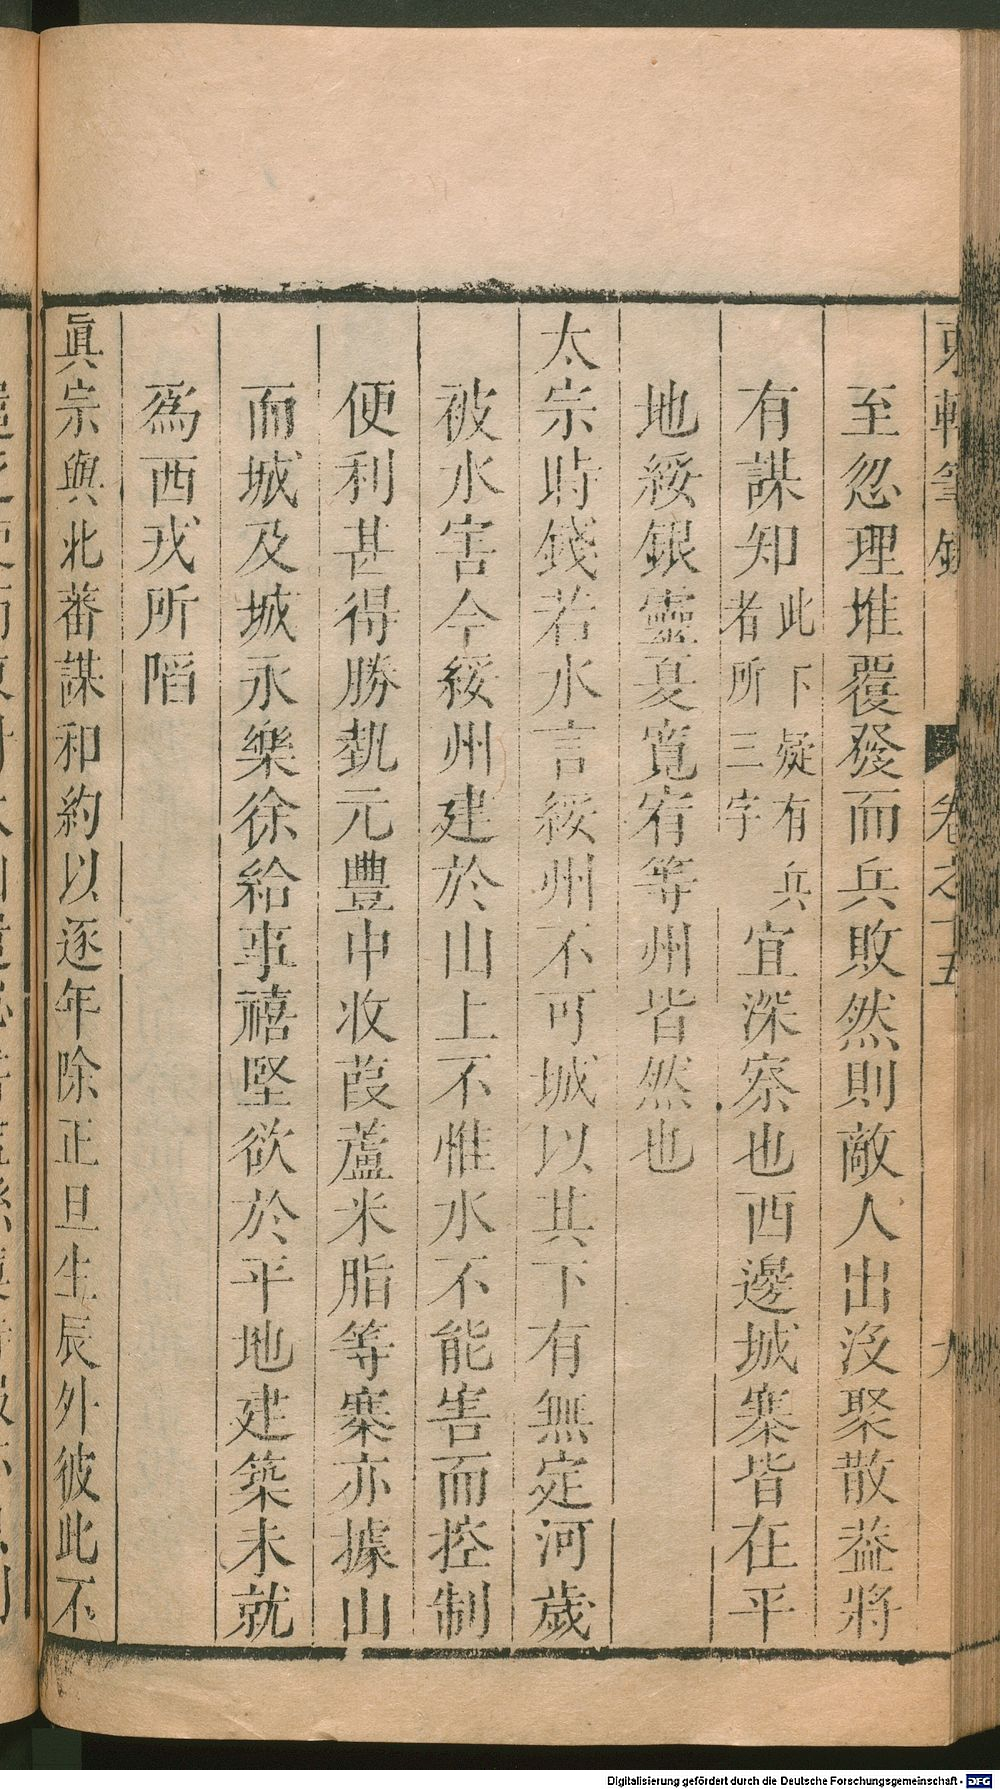 東軒筆錄 卷之十五 九
至忽理堆覆發而兵敗然則敵人出沒聚散益將
有謀知此下疑有兵者所三字宜深察也西邊城寨皆在平
地綏銀靈夏寬宥等州皆然也
太宗時錢若水言綏州不可城以其下有無定河歲
被水害今綏州建於山上不惟水不能害而控制
便利甚得勝埶元豐中收葭蘆米脂等寨亦據山
而城及城永樂徐給事禧堅欲於平地建築未就
爲西戎所陷
眞宗與北蕃謀和約以逐年除正旦生辰外彼此不
Digitalisierung gefördert durch die Deutsche Forschungsgemeinschaft - DFG